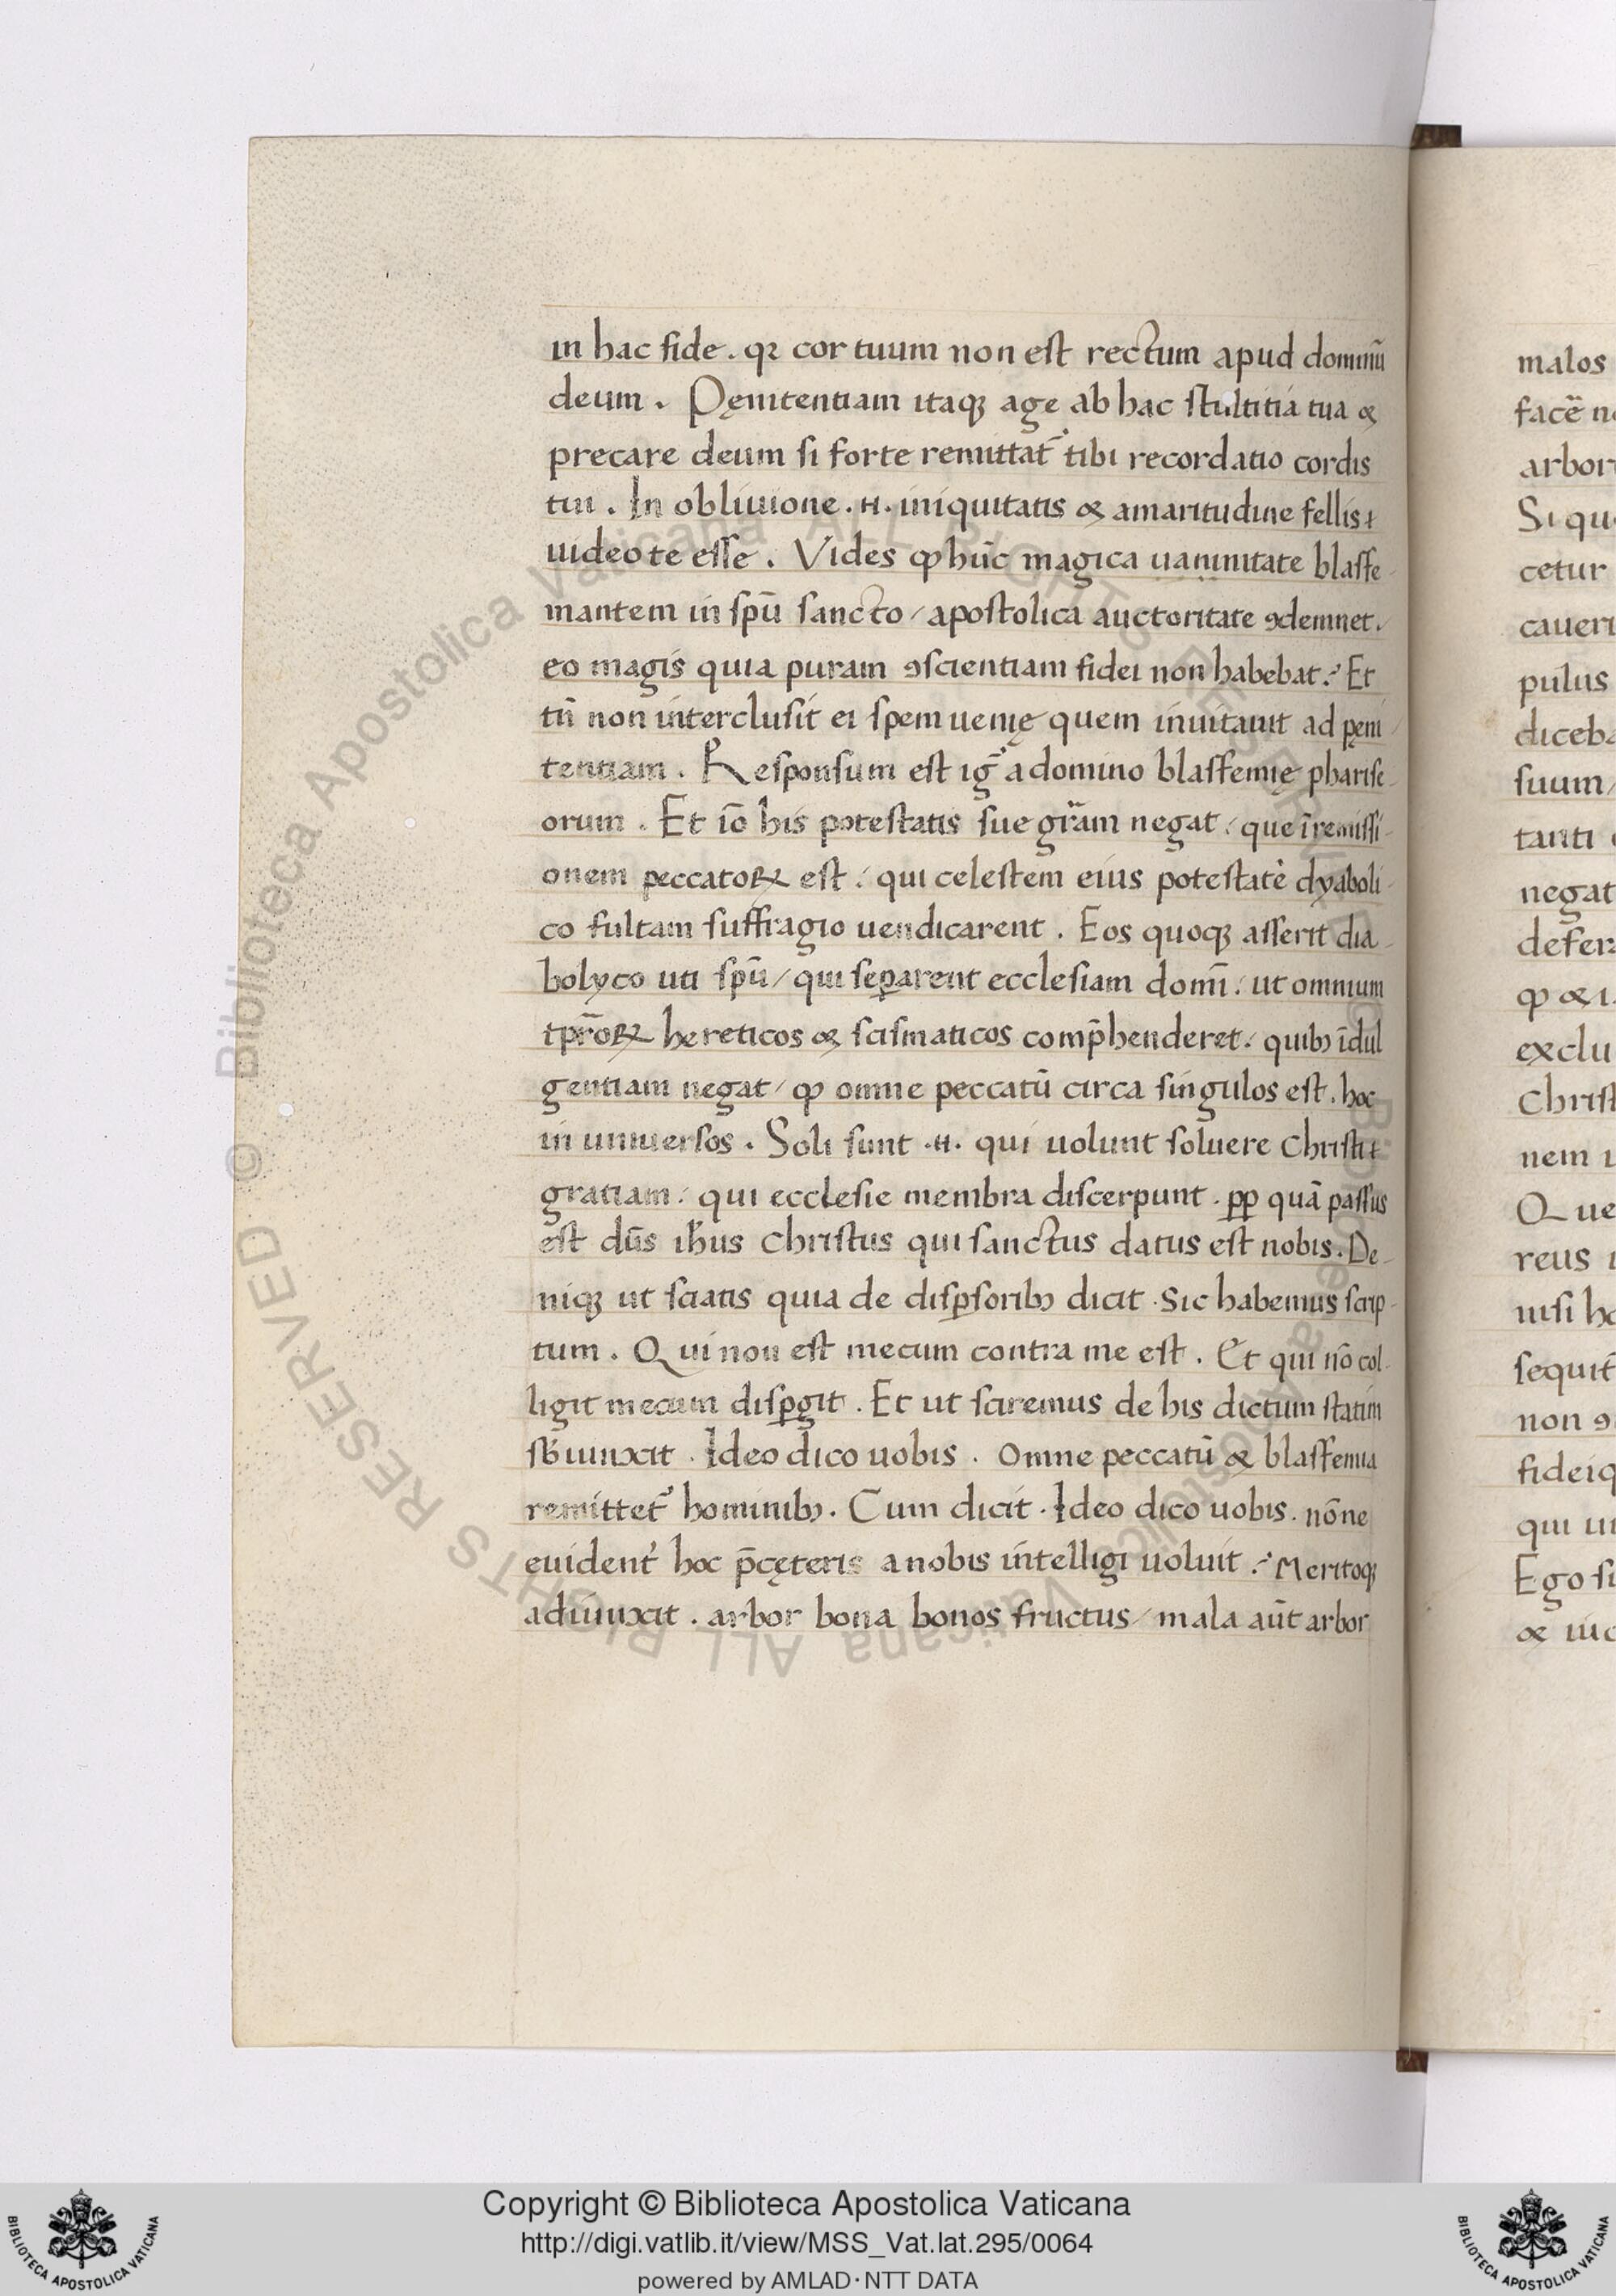 in hac fide. qꝛ cor tuum non est rectum apud dominū
deum. Pęnitentiam itaqꝫ age ab hac stultitia tua &
precare deum si forte remittat᷑ tibi recordatio cordis
tui. In obliuione .H. iniquitatis & amaritudine fellis
uideo te esse. Vides ꝙ hūc magica uaninitate blasfe
mantem in sp̄u sancto / apostolica auctoritate ꝯdemnet.
eo magis quia puram ꝯscientiam fidei non habebat? Et
tn̄ non interclusit ei spem uenię quem inuitauit ad pęni
tentiam. Responsum est ig̃ a domino blasfemię pharise
orum. Et iō his potestatis sue gr̃am negat / que ī remissi
onem peccatoꝝ est / qui celestem eius potestatē dyaboli
co fultam suffragio uendicarent. Eos quoqꝫ asserit dia
bolyco uti sp̄u / qui seꝑarent ecclesiam domī / ut omnium
tpr̄oꝝ hereticos & scismaticos comp̄henderet / quibꝫ īdul
gentiam negat / ꝙ omne peccatū circa singulos est. hoc
in uniuersos. Soli sunt .H. qui uolunt soluere Christi
gratiam / qui ecclesie membra discerpunt. pp̄ quā passus
est dn̄s ihus Christus qui sanctus datus est nobis. De
niqꝫ ut sciatis quia de disꝑsoribꝫ dicit. Sic habemus scrip
tum. Qui non est mecum contra me est. Et qui nō col
ligit mecum disꝑgit. Et ut sciremus de his dictum statim
sb̄iunxit. Ideo dico uobis. Omne peccatū & blasfemia
remittet᷑ hominibꝫ. Cum dicit. Ideo dico uobis. nōne
euident̾ hoc p̄cęteris a nobis intelligi uoluit? Meritoqꝫ
adiunxit. arbor bona bonos fructus / mala aūt arbor
malos
facē n
arbor
Si qu
cetur
caueri
pulus
diceba
suum /
tanti
negat
defer
ꝙ & i
exclu
Christ
nem
Que
reus
nisi h
sequit̄
non ꝯ
fideiq
qui
Ego si
& iu
© Biblioteca Apostolica Vaticana ALL RIGHTS RESERVED
Copyright © Biblioteca Apostolica Vaticana
http://digi.vatlib.it/view/MSS_Vat.lat.295/0064
powered by AMLAD·NTT DATA
BIBLIOTECA APOSTOLICA VATICANA
BIBLIOTECA APOSTOLICA VATICANA